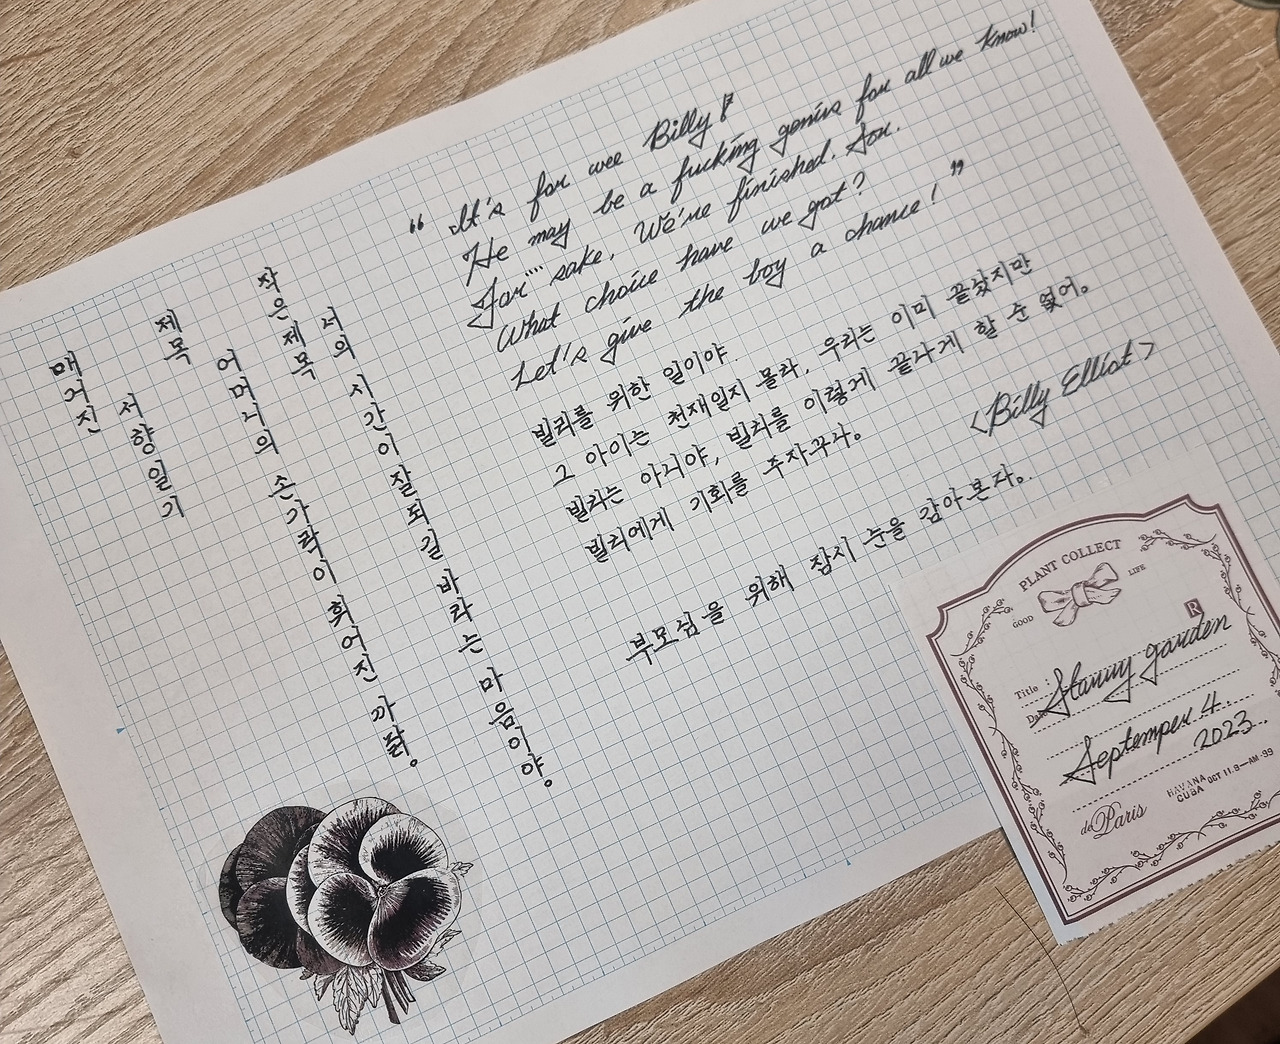 매거진
서향일기
제목
어머니의 손가락이 휘어진 까닭.
작은제목
너의 시간이 잘되길 바라는 마음이야.
“ It's for wee Billy!
He may be a fucking genius for all we know!
For .... sake, We're finished. Son.
What choice have we got?
Let's give the boy a chance! ”
빌리를 위한 일이야
그 아이는 천재일지 몰라, 우리는 이미 끝났지만
빌리는 아니야, 빌리를 이렇게 끝나게 할 순 없어.
빌리에게 기회를 주자꾸나.
<Billy Elliot>
부모님을 위해 잠시 눈을 감아본다.
PLANT COLLECT
GOOD LIFE
R
Title : Stanny garden
Date
September 4.
2023.
HAVANA
CUBA OCT 11.9—AM-99
de Paris